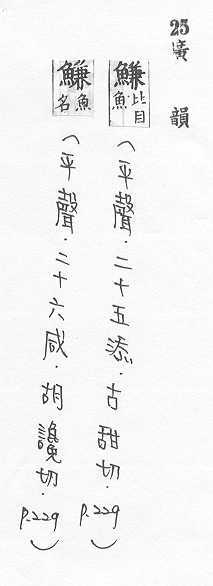 25 廣韻
鰜 比目魚（平聲．二十五添．古甜切．P.229）
鰜 魚名（平聲．二十六咸．胡讒切．P.229）